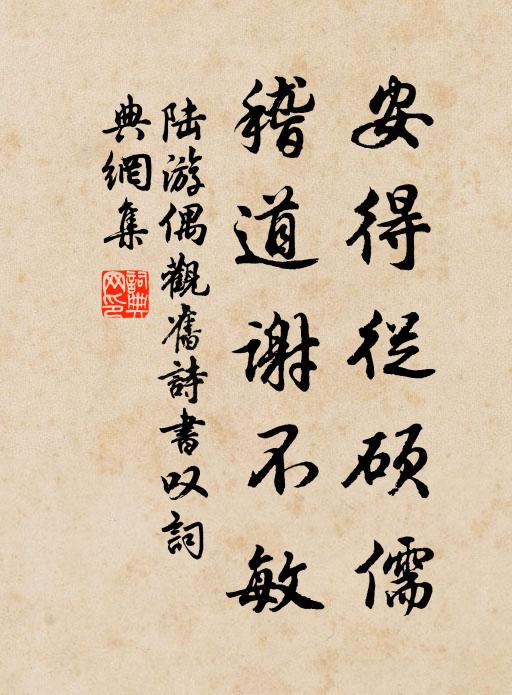 安得從硕儒
稽道謝不敏
陆游偶觀舊詩書叹詞
典網集
詞典网印